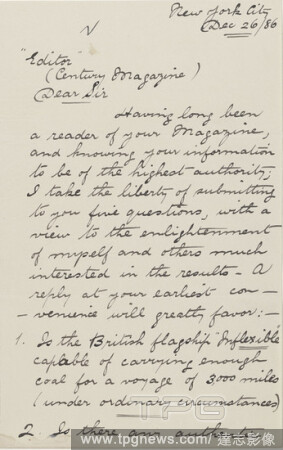 New York City
Dec 26/86
"Editor"
(Century Magazine)
Dear Sir
Having long been
a reader of your Magazine,
and knowing your information
to be of the highest authority;
I take the liberty of submitting
to you five questions, with a
view to the enlightenment
of myself and others much
interested in the results - A
reply at your earliest con-
-venience will greatly favor:-
1. Is the British flagship Inflexible
capable of carrying enough
coal for a voyage of 3000 miles
(under ordinary circumstances)
2. Is there any authentic
TPG
www.tpgnews.com / 達志影像